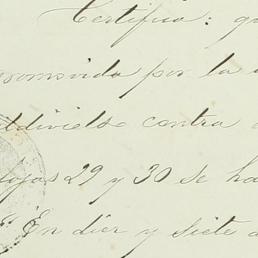 Certifico: qu
romovida por la
aldivielso contra
fojas 29 y 30 se ha
"En diez y siete d